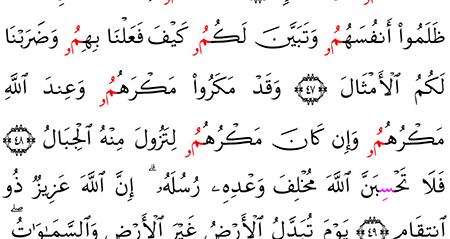 ظَلَمُواْ أَنفُسَهُمُۥ وَتَبَيَّنَ لَكُمُۥ كَيْفَ فَعَلْنَا بِهِمُۥ وَضَرَبْنَا
لَكُمُ ٱلْأَمْثَالَ ۝٤٧ وَقَدْ مَكَرُواْ مَكْرَهُمُۥ وَعِندَ ٱللَّهِ
مَكْرُهُمُۥ وَإِن كَانَ مَكْرُهُمُۥ لِتَزُولَ مِنْهُ ٱلْجِبَالُ ۝٤٨
فَلَا تَحْسِبَنَّ ٱللَّهَ مُخْلِفَ وَعْدِهِۦ رُسُلَهُۥٓ ۗ إِنَّ ٱللَّهَ عَزِيزٌ ذُو
ٱنتِقَامٍ ۝٤٩ يَوْمَ تُبَدَّلُ ٱلْأَرْضُ غَيْرَ ٱلْأَرْضِ وَٱلسَّمَٰوَٰتُ ۖ